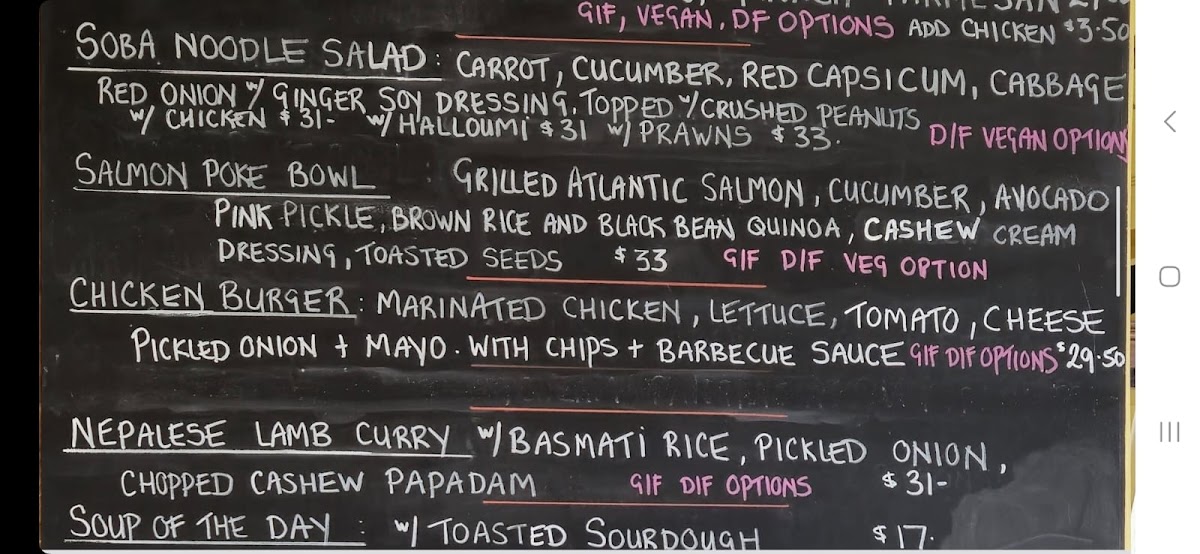 GIF, VEGAN, DF OPTIONS ADD CHICKEN $3.50
SOBA NOODLE SALAD: CARROT, CUCUMBER, RED CAPSICUM, CABBAGE
RED ONION W/ GINGER SOY DRESSING, TOPPED W/ CRUSHED PEANUTS
W/ CHICKEN $31- W/ HALLOUMI $31 W/ PRAWNS $33.
D/F VEGAN OPTION
SALMON POKE BOWL : GRILLED ATLANTIC SALMON, CUCUMBER, AVOCADO
PINK PICKLE, BROWN RICE AND BLACK BEAN QUINOA, CASHEW CREAM
DRESSING, TOASTED SEEDS $33 GIF DIF VEG OPTION
CHICKEN BURGER: MARINATED CHICKEN, LETTUCE, TOMATO, CHEESE
PICKLED ONION + MAYO. WITH CHIPS + BARBECUE SAUCE GIF DIF OPTIONS $29.50
NEPALESE LAMB CURRY W/ BASMATI RICE, PICKLED ONION,
CHOPPED CASHEW PAPADAM GIF DIF OPTIONS $31-
SOUP OF THE DAY : W/ TOASTED SOURDOUGH $17.